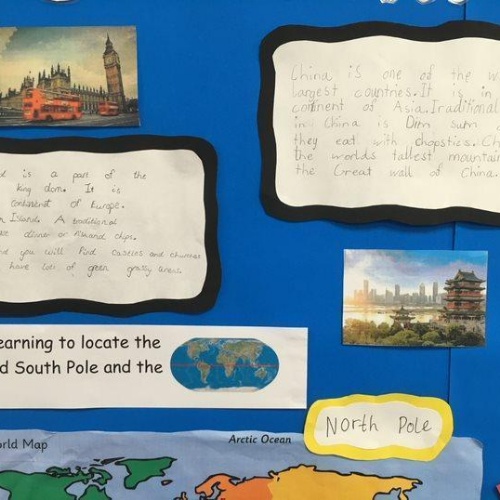 China is one of the w
largest countries. It is in
continent of Asia. Traditional
in China is Dim sum
they eat with chopstics. Ch
the worlds tallest mountain
the Great wall of China.
is a part of the
king dom. It is
continent of Europe.
n Island. A traditional
dinner or fish and chips.
nd you will find castles and churches
have lots of green grassy areas
earning to locate the
d South Pole and the
North Pole
orld Map
Arctic Ocean